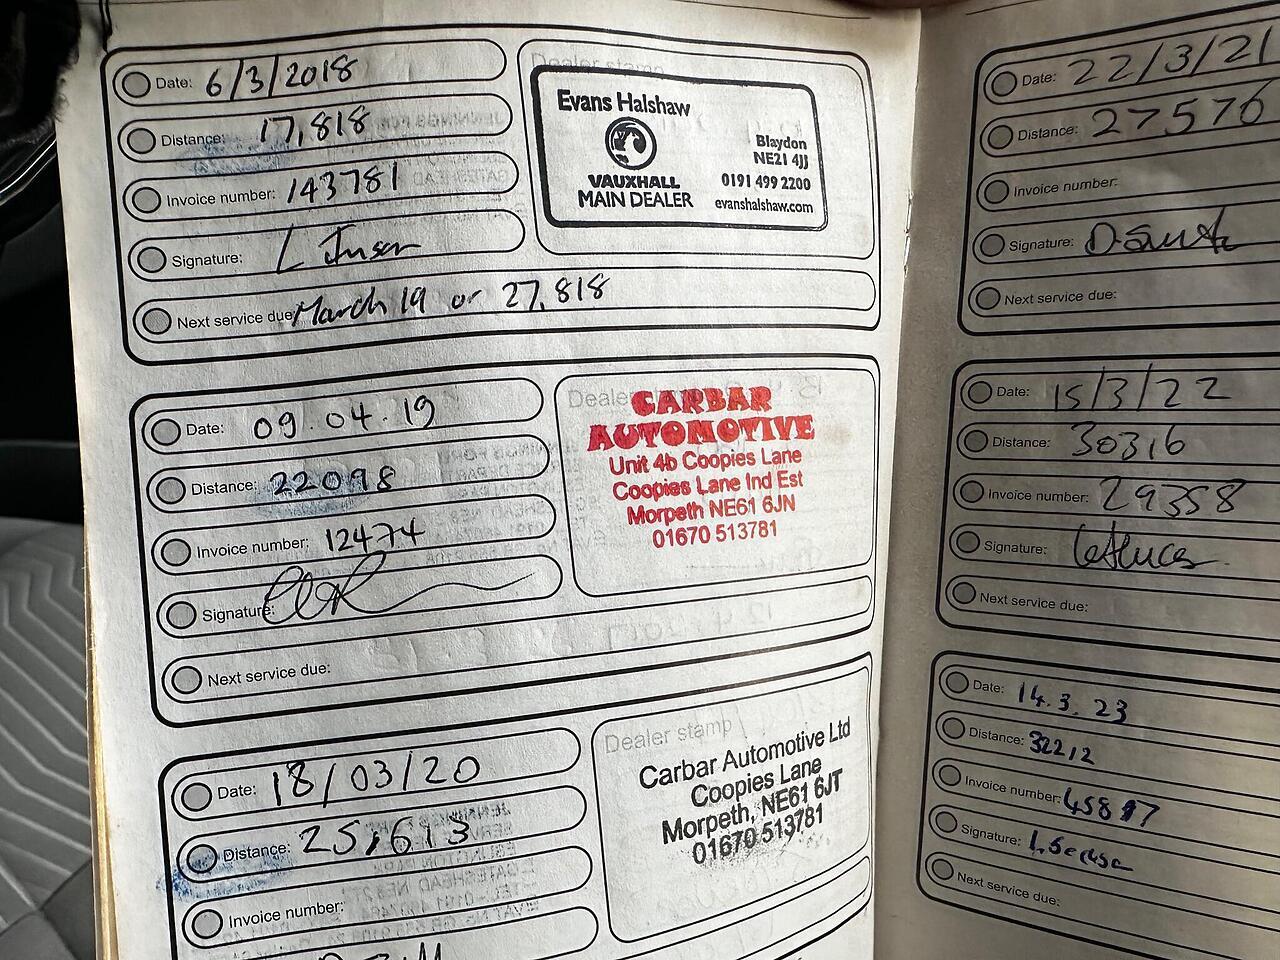 Date: 6/3/2018
Distance: 17,818
Invoice number: 143781
Signature:
Next service due: March 19 or 27,818
Dealer stamp
Evans Halshaw
VAUXHALL
MAIN DEALER
Blaydon
NE21 4JJ
0191 499 2200
evanshalshaw.com
Date: 09.04.19
Distance: 22098
Invoice number: 12474
Signature:
Next service due:
Dealer
CARBAR
AUTOMOTIVE
Unit 4b Coopies Lane
Coopies Lane Ind Est
Morpeth NE61 6JN
01670 513781
Date: 18/03/20
Distance: 25,613
Invoice number:
Dealer stamp
Carbar Automotive Ltd
Coopies Lane
Morpeth, NE61 6JT
01670 513781
Date: 22/3/21
Distance: 27576
Invoice number:
Signature:
Next service due:
Date: 15/3/22
Distance: 30316
Invoice number: 29358
Signature:
Next service due:
Date: 14.3.23
Distance: 32212
Invoice number:
Signature:
Next service due: